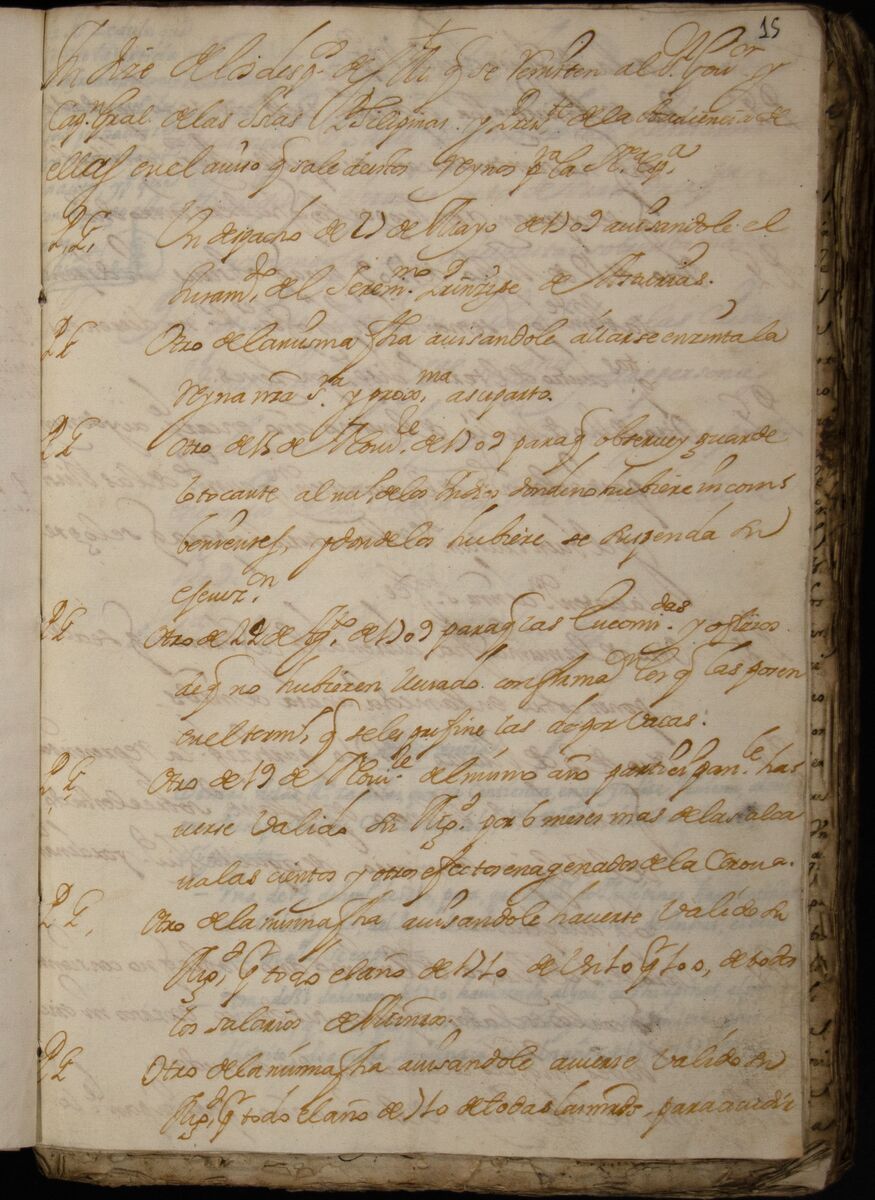 15
Indize de los desp.s de S. M. q se remiten al S.r Gov.or y
Cap.n Gral de las Islas Philipinas y Presi.te de la Audiencia de
ellas en el aviso q sale destos Reynos p.a la N.a Esp.a
P. G. Un despacho de 27 de Mayo de 1709 avisandole el
Juram.to del Seren.mo Principe de Asturias.
P G Otro de la misma fha avisandole allarse en zinta la
Reyna nrã S.ra y prox.ma a su parto.
P G Otro de 15 de Nov.re de 1709 para q observe y guarde
lo tocante al de los donde no hubiere incom
benientes, y donde los hubiere se suspenda su
execuz.n
P G Otro de 24 de Ag.to de 1709 para q las Encom.das y oficios
de q no hubieren llevado confirmaz.on los q las posen
en el term.o q se les prefine las de por vacas.
P G Otro de 19 de Nov.re del mismo año partizipan.le ha
verse valido Su Mag.d por 6 meses mas de las alca
valas cientos y otros efectos enagenados de la Corona.
P G. Otro de la misma fha avisandole haverse valido Su
Mag.d p.r todo el año de 1710 de un 10 p.r 100, de todos
los salarios de Ministros.
P G Otro de la misma fha avisandole averse valido Su
Mag.d p.r todo el año de 710 de todas las para acudir